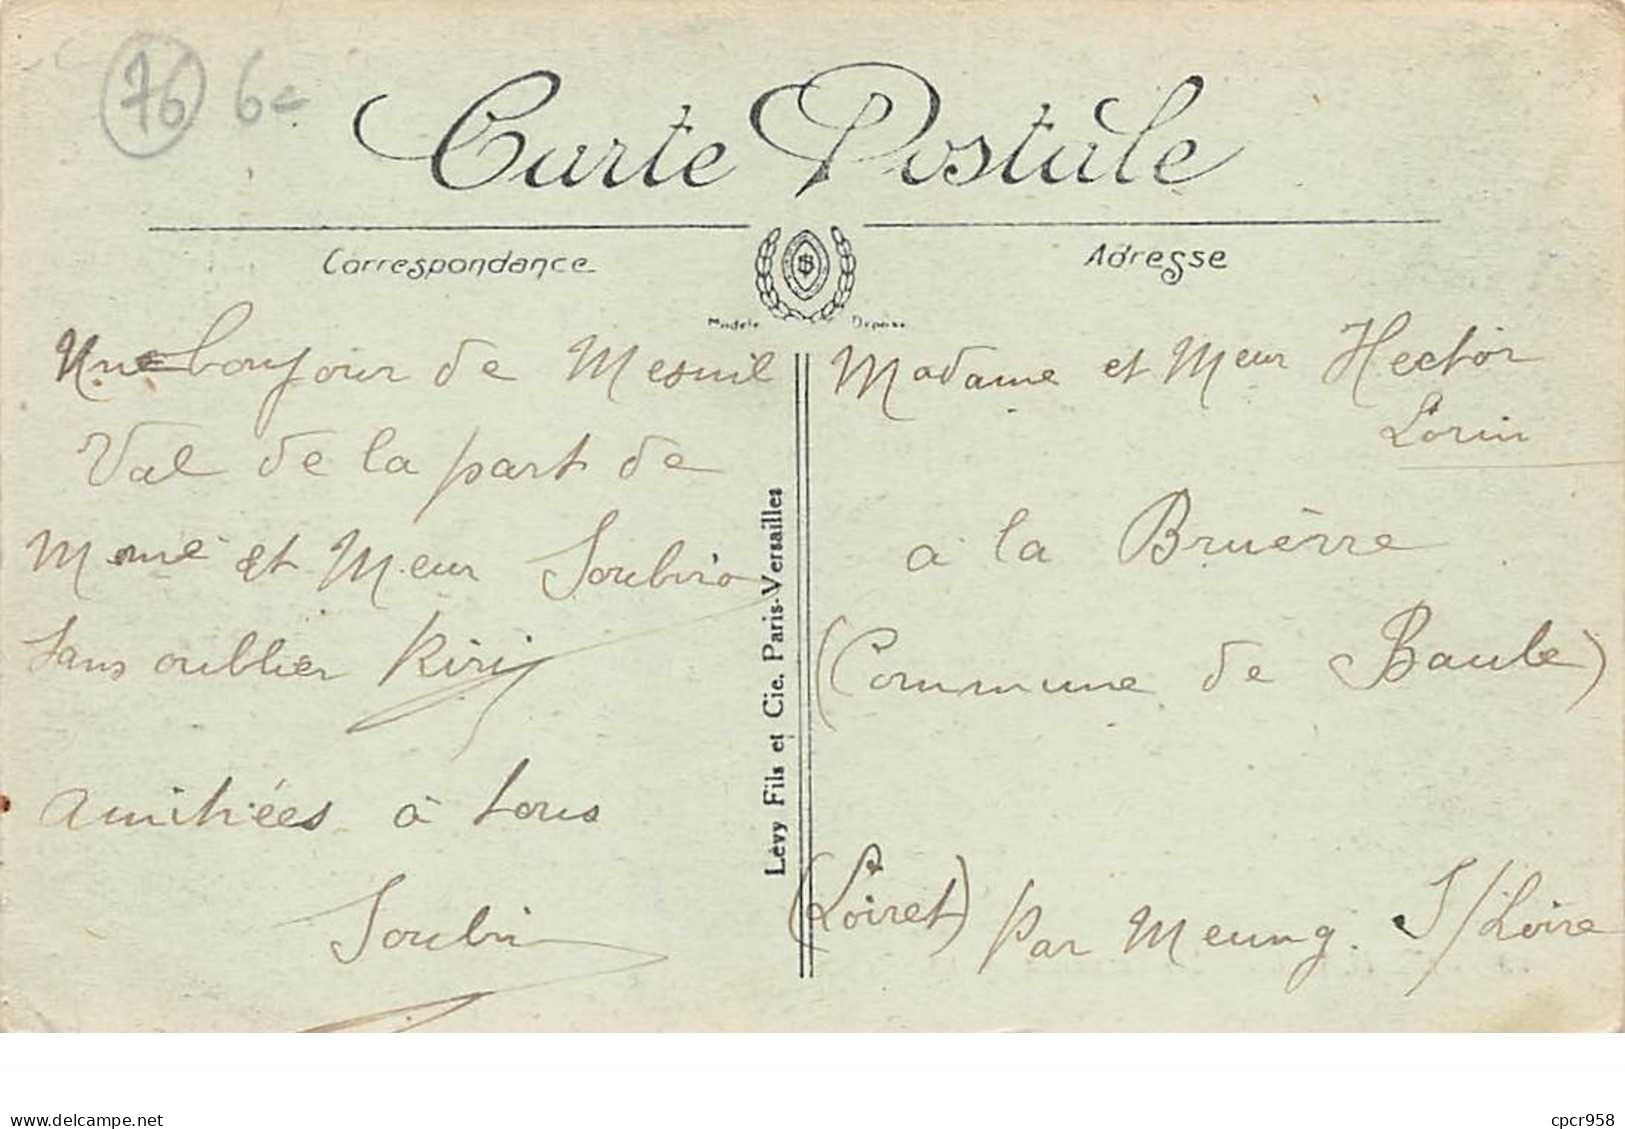 76 6e
Carte Postale
Correspondance
Adresse
Modèle Déposé
Une bonjour de Mesnil
Val de la part de
Mme et Meur Soubiro
sans oublier Kiri
amitiées à tous
Soubiro
Lévy Fils et Cie. Paris-Versailles
Madame et Meur Hector
Lorin
à la Bruèrre
(Commune de Baule)
(Loiret) par Meung. S/Loire
www.delcampe.net
cpcr958